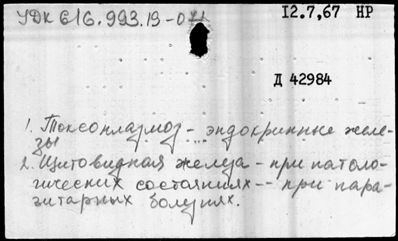 УДК 616.993.19-071
12.7,67 НР
Д 42984
1. Токсоплазмоз - эндокринные желе-
зы
2. Щитовидная железа - при патоло-
гических состояниях -- при пара-
зитарных болезнях.